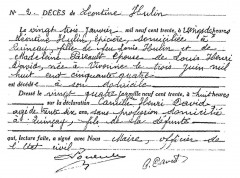 N° 2. DÉCÈS de Léontine Hulin
Le vingt trois janvier mil neuf cent trente, à onze heures
Léontine Hulin épicière, domiciliée à
Quinçay, fille de feu Louis Hulin et de
Madeleine épouse de Louis Henri
David, née à Vivonne le trois juin mil
huit cent cinquante quatre
est décédée à son domicile
Dressé le vingt quatre janvier mil neuf cent trente, à huit heures
sur la déclaration Camille Henri David
âgé de trente six ans profession domicilié
à Quinçay, fils de la défunte
qui, lecture faite, a signé avec Nous Maire, officier de
l'état civil.
David